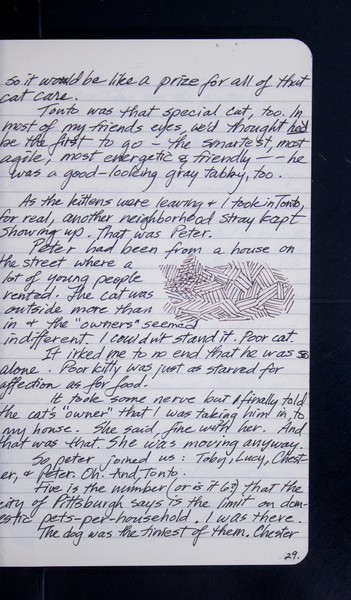 so it would be like a prize for all of that
cat care.
Tonto was that special cat, too. In
most of my friends eyes, we'd thought had
be the first to go - the smartest, most
agile, most energetic & friendly -- he
was a good-looking gray tabby, too.
As the kittens were leaving & I took in Tonto,
for real, another neighborhood stray kept
showing up. That was Peter.
Peter had been from a house on
the street where a
lot of young people
rented. The cat was
outside more than
in & the "owners" seemed
indifferent. I couldn't stand it. Poor cat.
It irked me to no end that he was so
alone. Poor kitty was just as starved for
affection as for food.
It took some nerve but I finally told
the cat's "owner" that I was taking him in, to
my house. She said, fine with her. And
that was that. She was moving anyway.
So, peter joined us: Toby, Lucy, Chest
er, & Peter. Oh. And, Tonto.
Five is the number (or is it 6?) that the
city of Pittsburgh says is the limit on dom-
estic pets-per-household. I was there.
The dog was the tiniest of them. Chester
29.